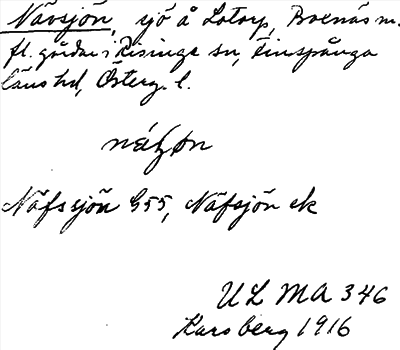 Nävsjön, sjö å Lotorp, Broenäs m.
fl. gårdar i Risinge sn, Finspånga
läns hd, Österg. l.
Näfssjön G55, Näfsjön ek
ULMA 346
Karsberg 1916